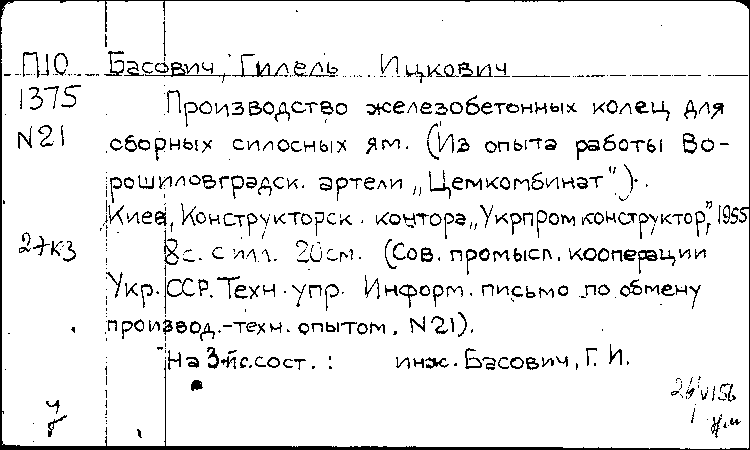 П10 Басович, Гилель Ицкович
1375 Производство железобетонных колец для
N21 сборных силосных ям. (Из опыта работы Во-
рошиловградск. артели „Цемкомбинат").
Киев, Конструкторск. контора „Укрпромконструктор", 1955
27кз 8с. с илл. 20см. (Сов. промысл. кооперации
Укр. ССР. Техн. упр. Информ. письмо по обмену
производ.-техн. опытом, N21).
На 3-й с. сост.: инж. Басович, Г. И.